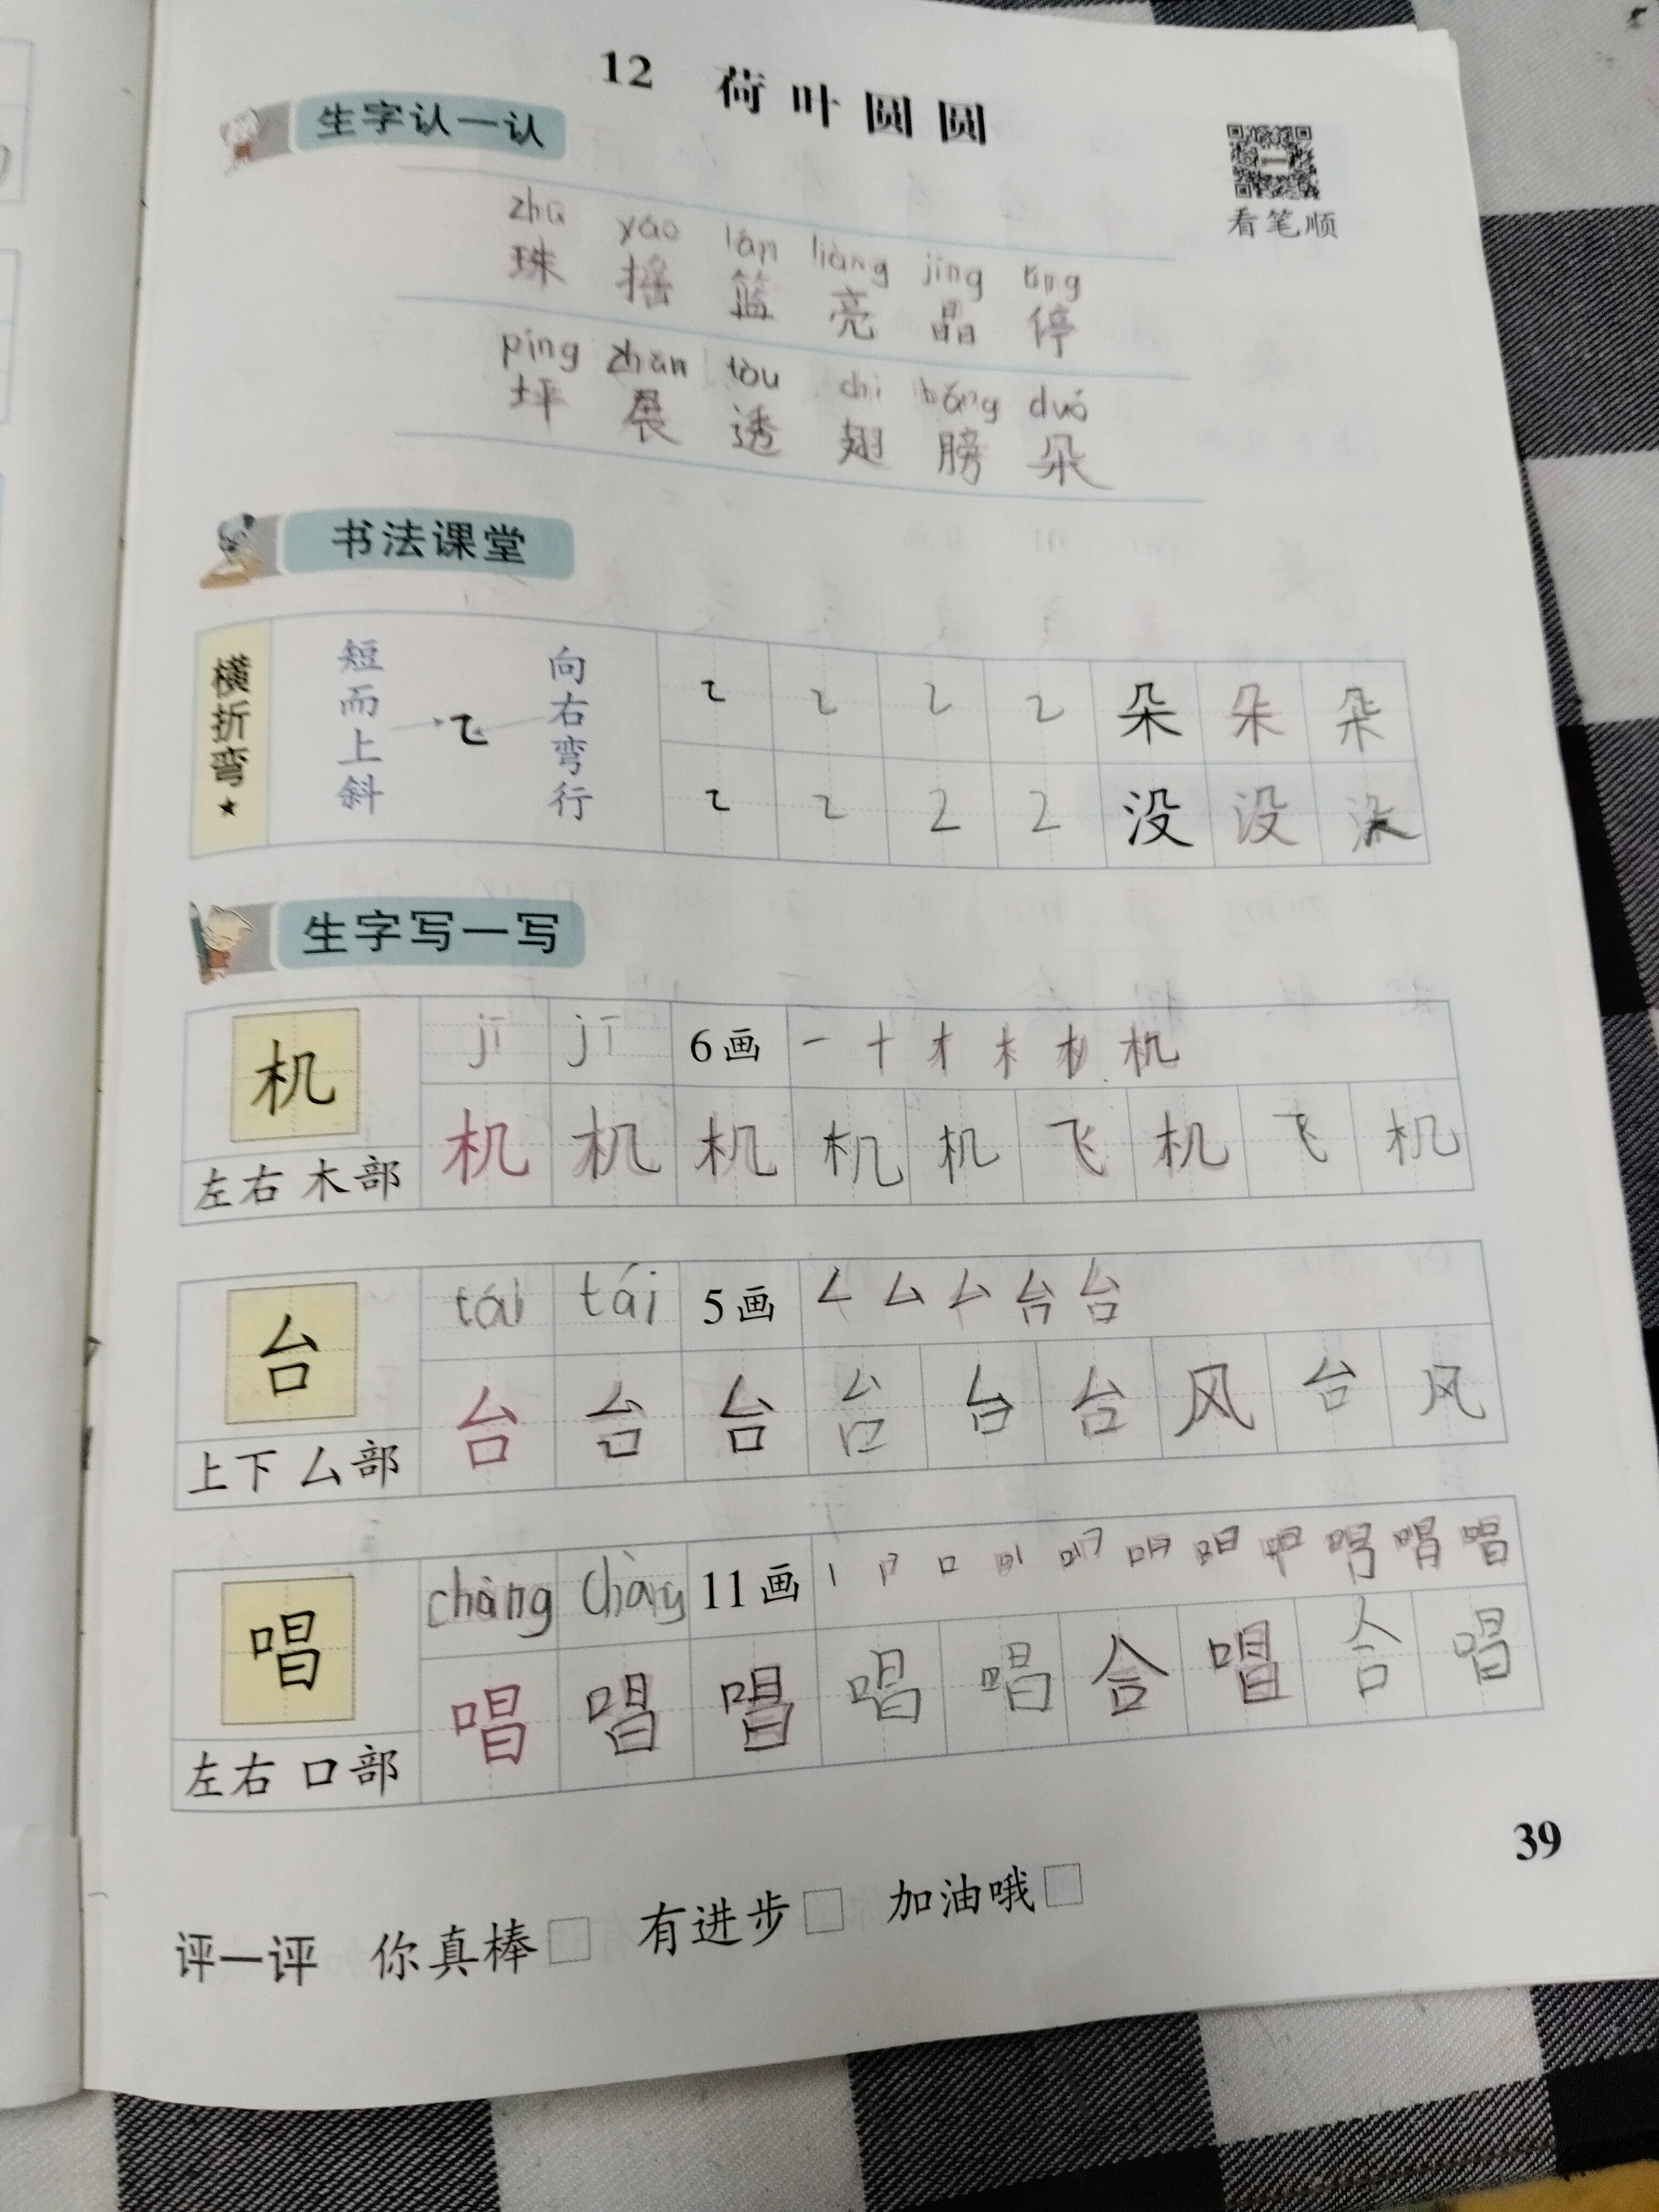 12 荷叶圆圆
生字认一认
看笔顺
zhū yáo lán liàng jīng tíng
珠 摇 篮 亮 晶 停
píng zhǎn tòu chì bǎng duǒ
坪 展 透 翅 膀 朵
书法课堂
横折弯★
短而上斜
向右弯行
朵 朵 朵
没 没
生字写一写
机 jī jī 6画 一 十 才 木 机 机
左右 木部 机 机 机 机 机 飞 机 飞 机
台 tái tái 5画 厶 台 台
上下 厶部 台 台 台 台 台 台 风 台 风
唱 chàng chàng 11画 丨 口 唱 唱
左右 口部 唱 唱 唱 唱 唱 合 唱 合 唱
39
评一评 你真棒□ 有进步□ 加油哦□